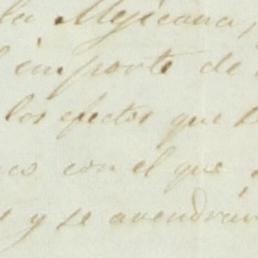 la Mejicana,
importe de
los efectos que
con el que
y se avendrán